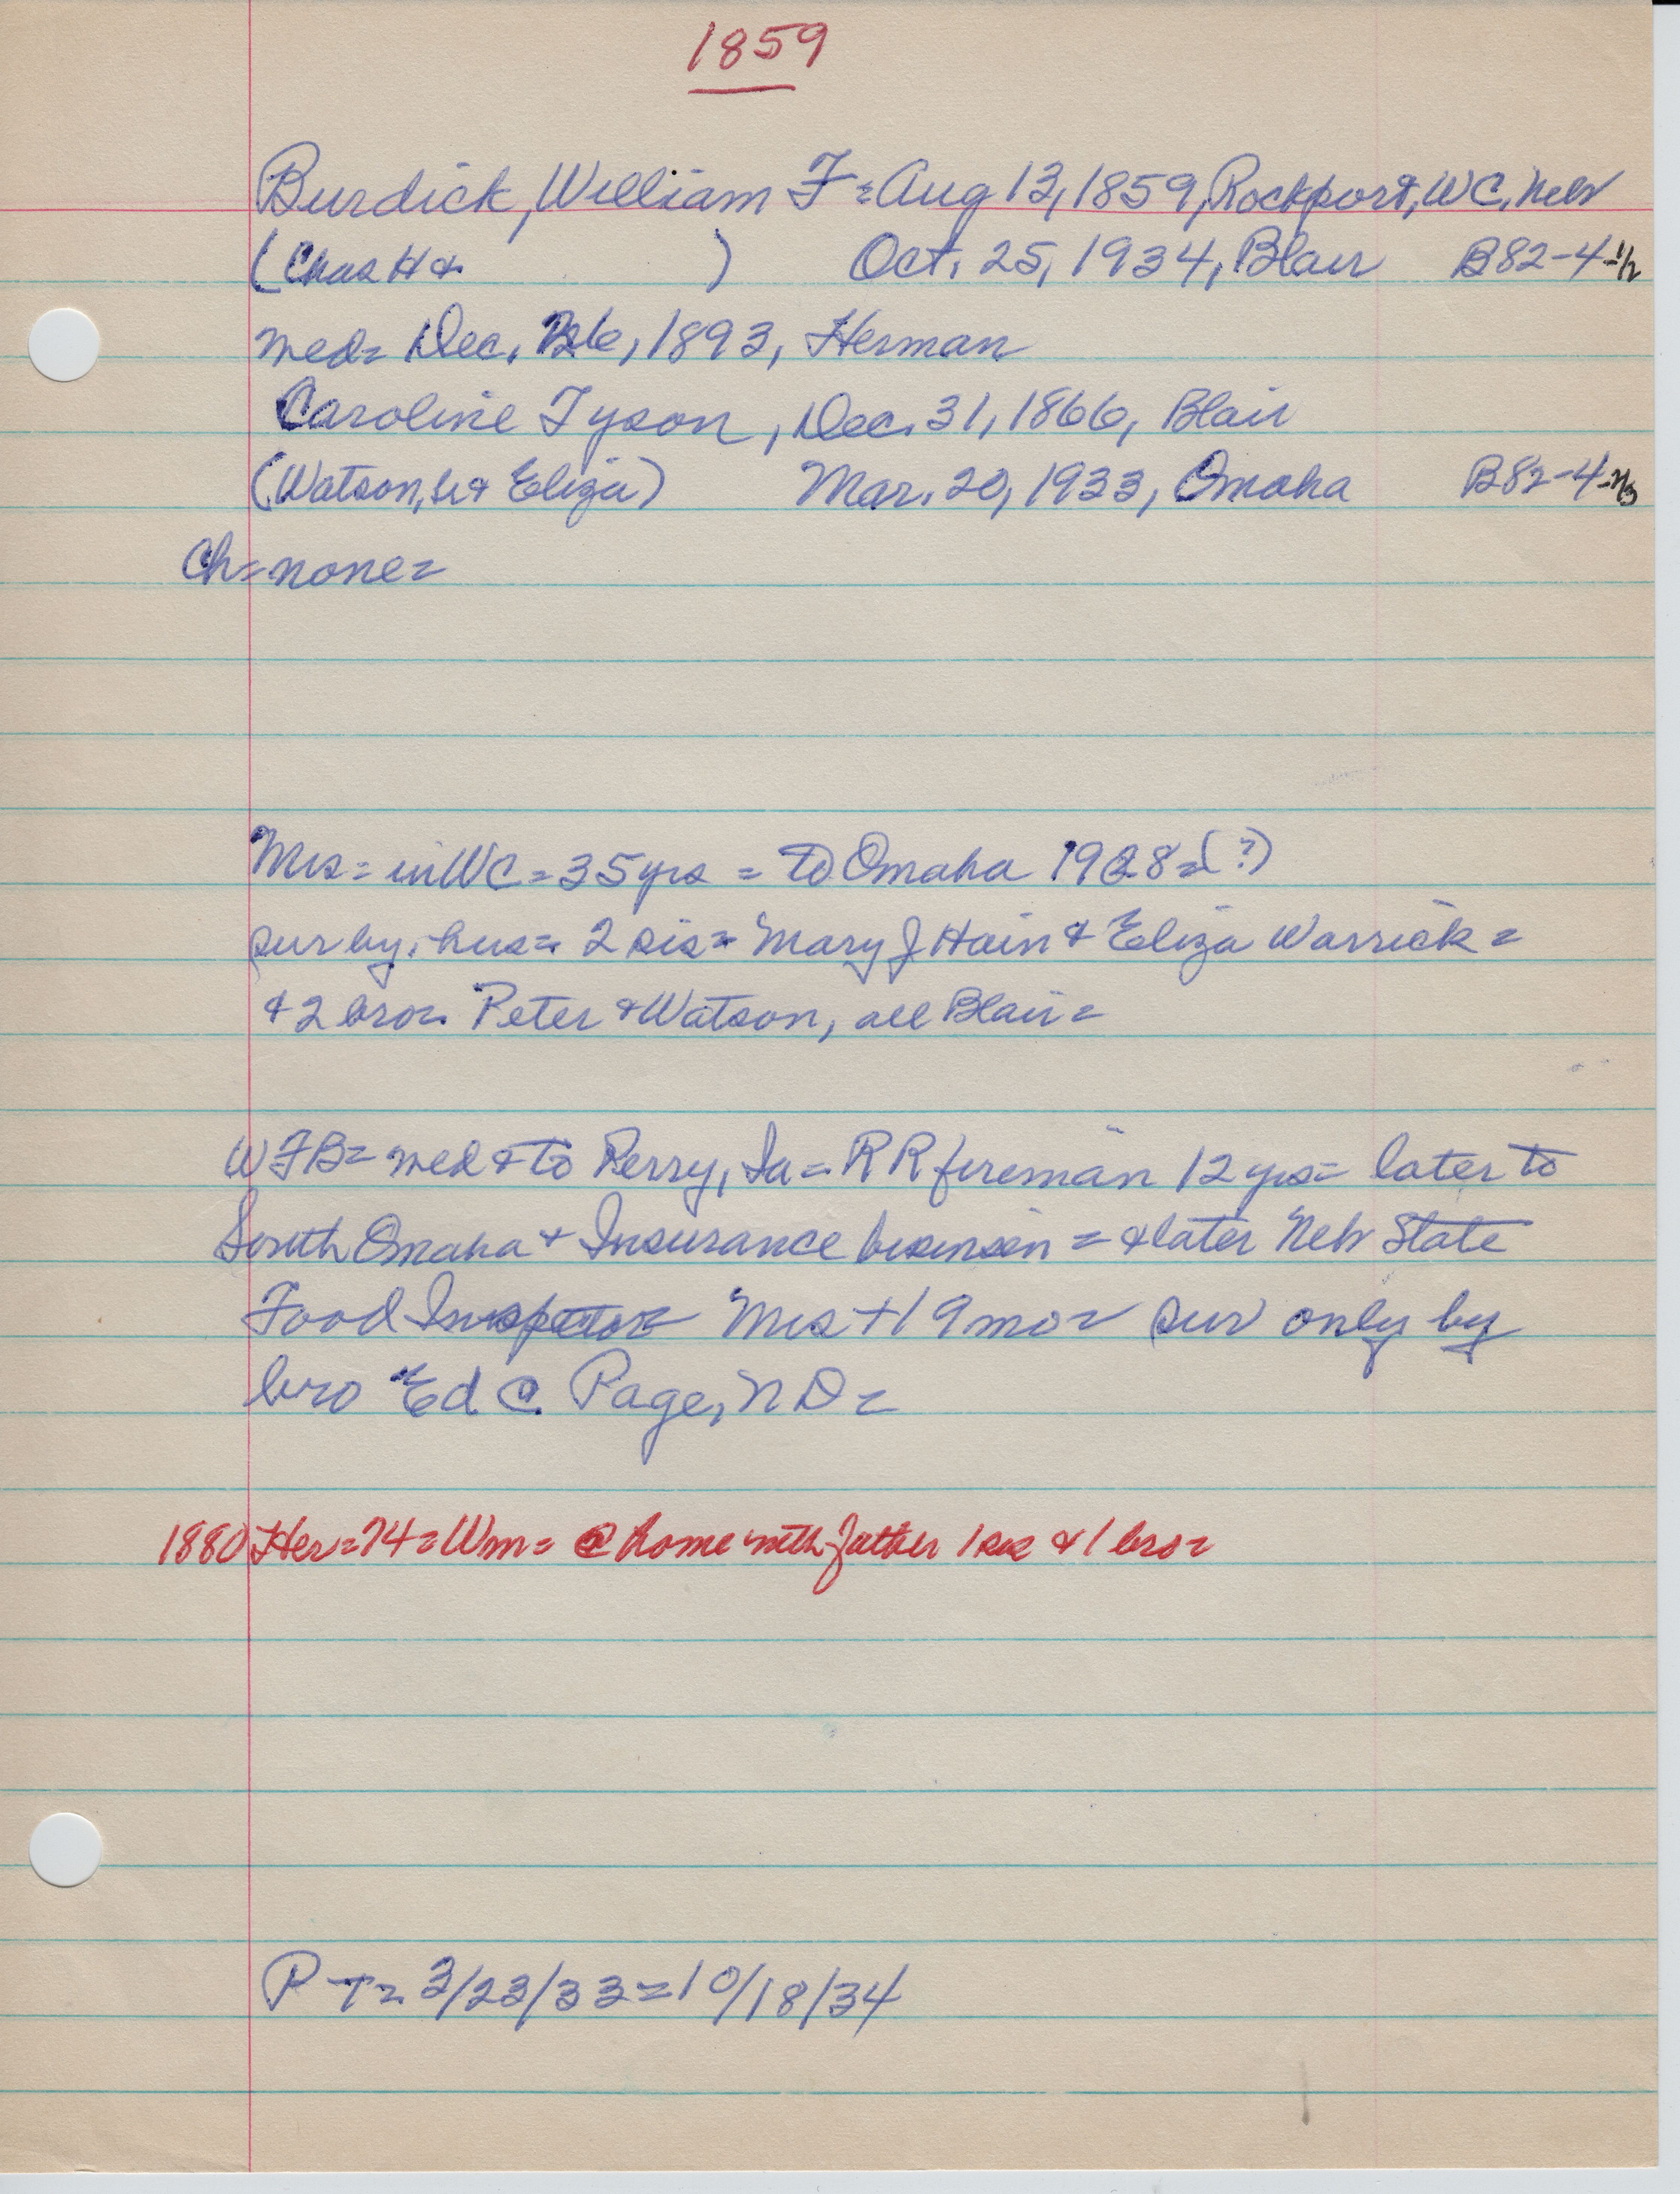 1859
Burdick, William F = Aug 13, 1859, Rockport, WC, Nebr
(Chas H & ) Oct. 25, 1934, Blair B82-4-1/2
med= Dec. 26, 1893, Herman
Caroline Tyson, Dec. 31, 1866, Blair
(Watson, Sr & Eliza) Mar. 20, 1933, Omaha B82-4-
Ch= none=
Mrs = in WC = 35 yrs = to Omaha 1928=(?)
sur by, hus= 2 sis= Mary J Hain & Eliza Warrick =
& 2 bro= Peter & Watson, all Blair =
WFB= med & to Perry, Ia = RR fireman 12 yrs= later to
South Omaha & Insurance = & later Nebr State
Food Inspector= Mrs + 19 mo= sur only by
bro Ed C. Page, ND=
1880 Her=74=Wm= @ home with father 1 sis & 1 bro=
P-T= 3/23/33=10/18/34